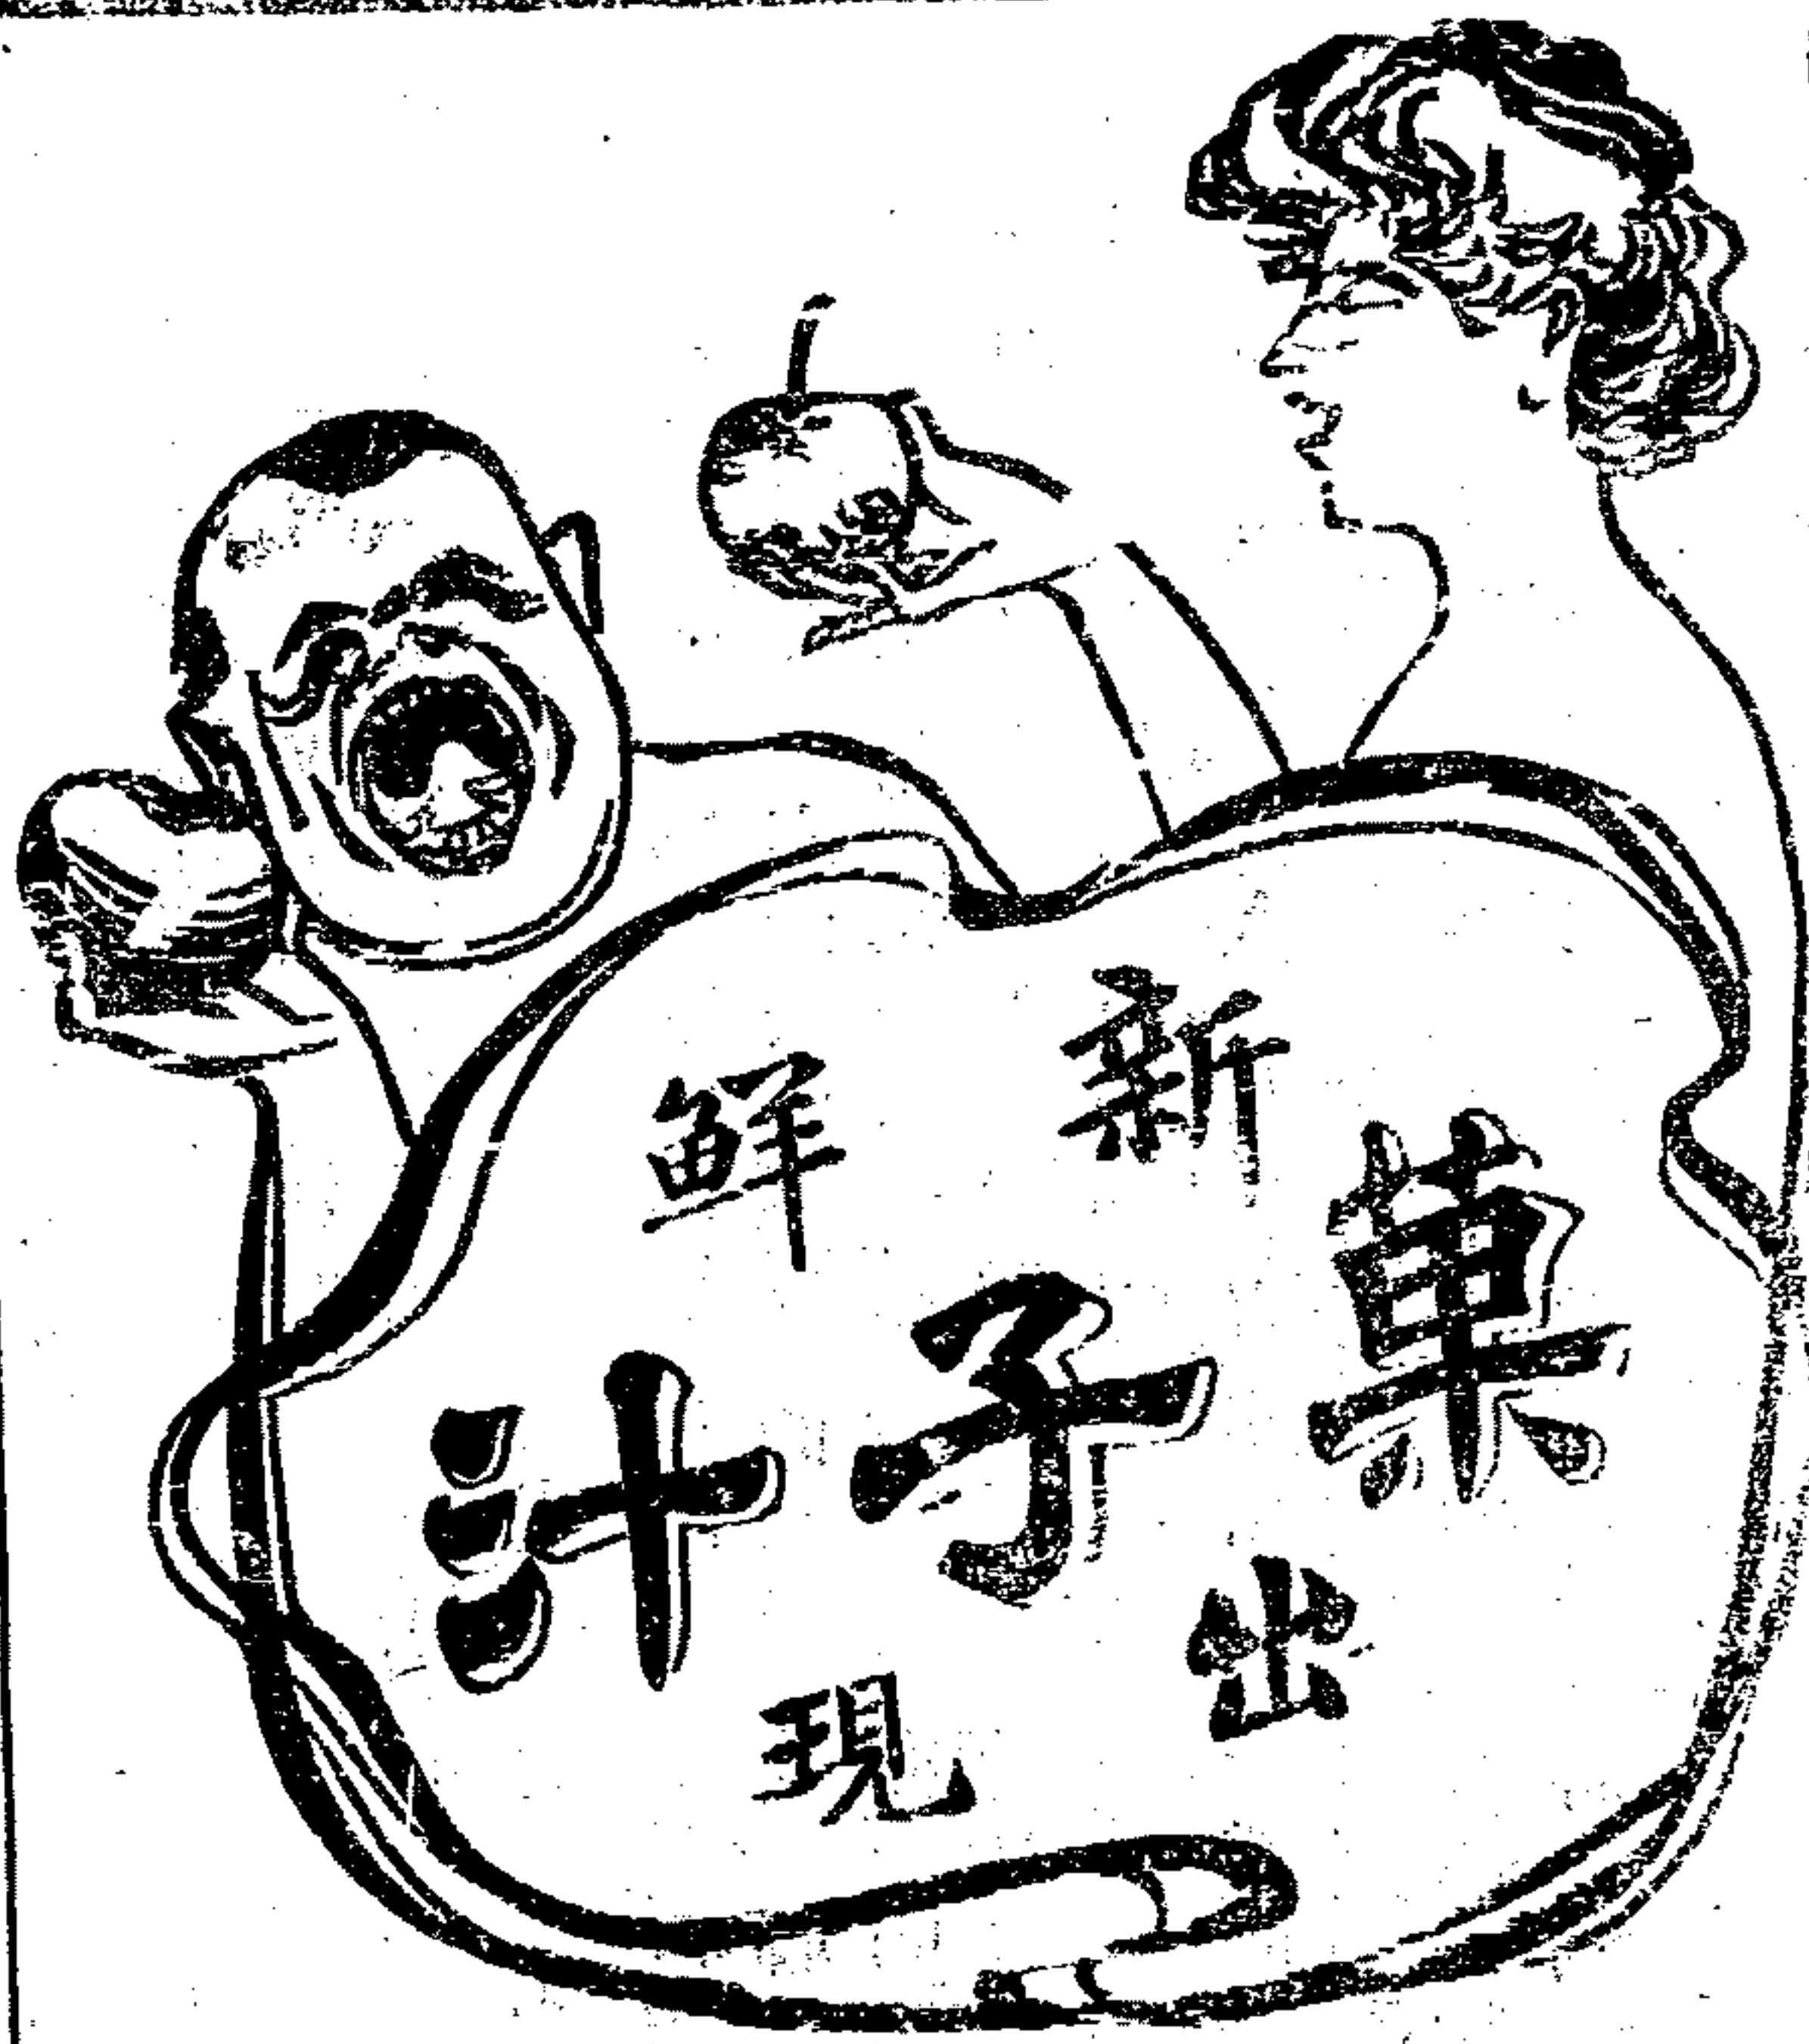 新鮮
菓子汁
出現